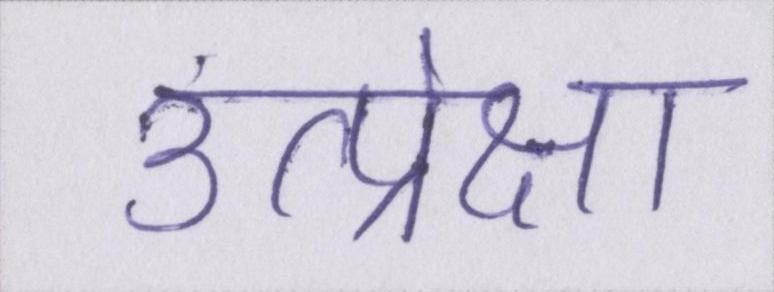 उत्प्रेक्षा